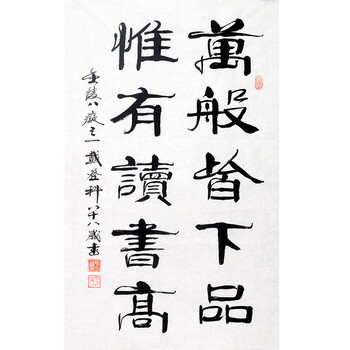 萬般皆下品
惟有讀書高
金陵八癡之一戴登科八十八歲書